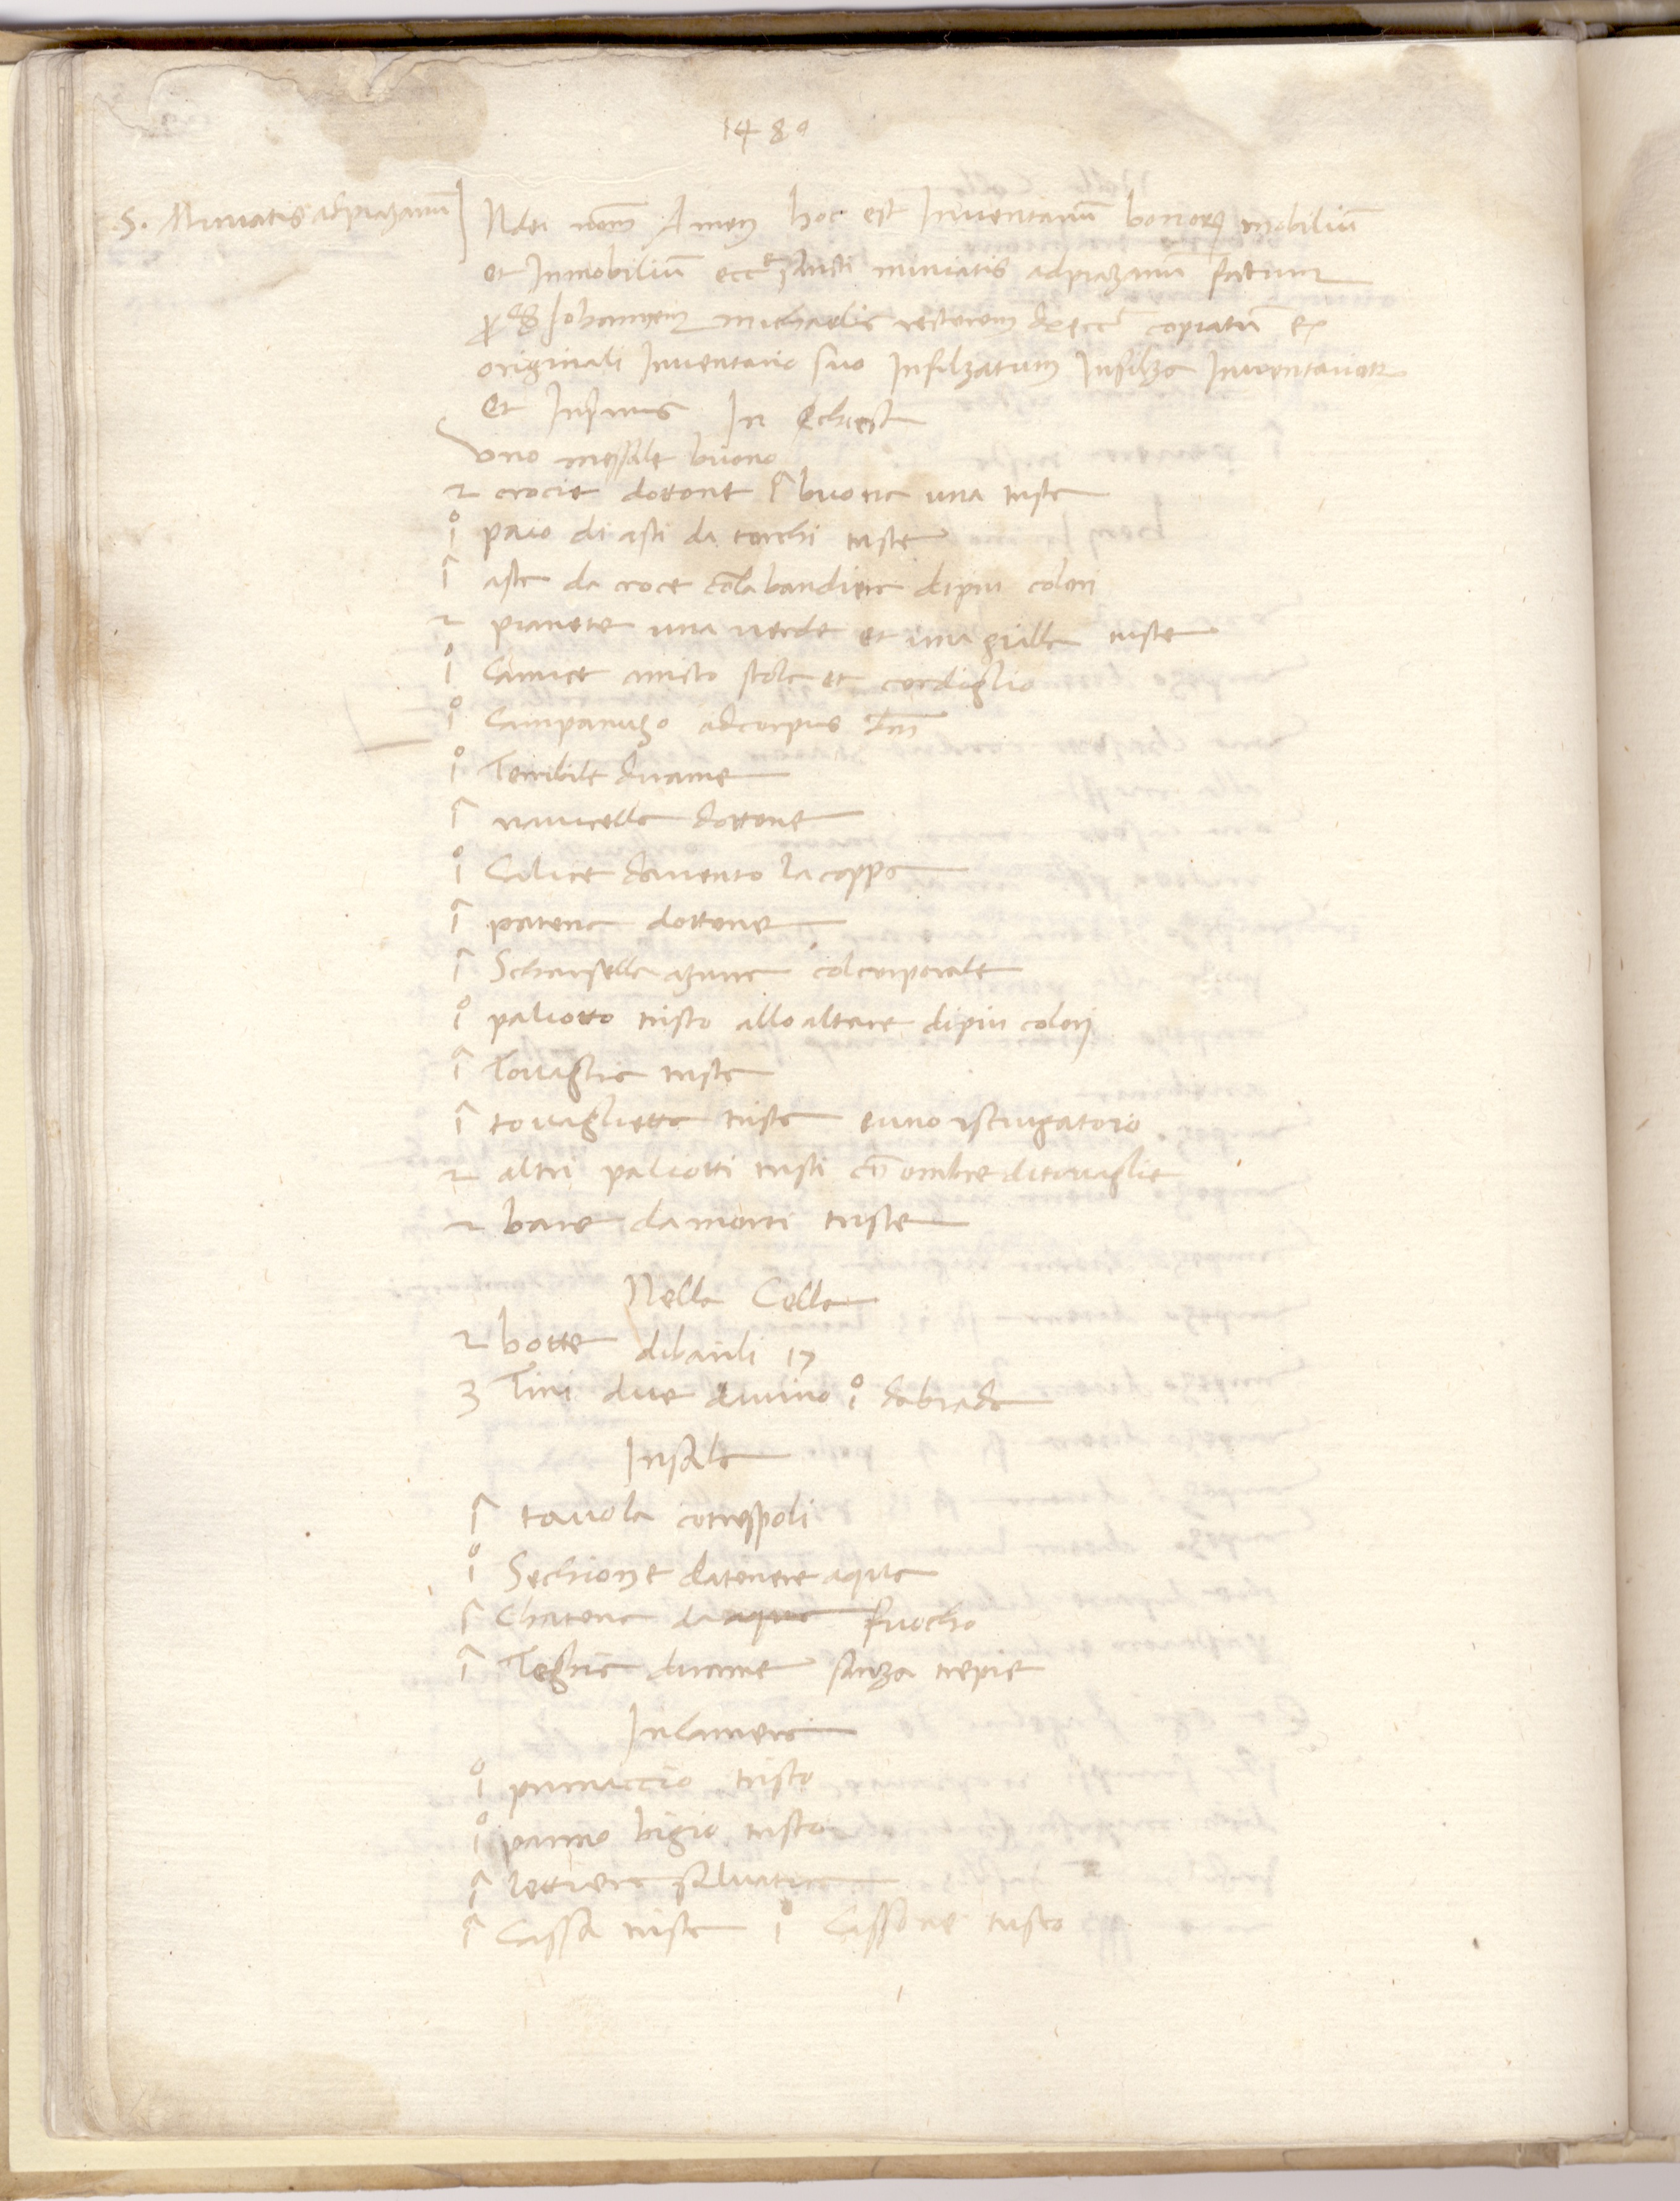 1480
S. Miniatis adpiazanū
INdei noīe Amen hoc est Inventariū bonorꝝ mobiliū
et Inmobiliū eccͤ sancti miniatis adpiazanū factum
Johannem michaelis rectorem eccͤ copiatū ex
originali Inventario suo Infilzatum Infilza Inventariorꝝ
Et Inprimus In chiesa
Uno messale buono
2 crocie dottone 1ª buona una trista
1º paio di asti da torchi triste
1ª asta da croce cōla bandiera dipiu colori
2 pianete una verde et una gialla triste
1º Camice amicto stola et cordiglio
1º Campanuzo adcorpus dn̄i
1º Terribile drame
1ª navicella dottone
1º Calice dariento la coppa
1ª patena dottone
1ª Scharsella azurra colcorporale
1º paliotto tristo allo altare dipiu colori
1ª Tovaglia trista
1ª tovaglietta trista euno isciugatoio
2 altri paliotti tristi cō ombre ditovaglie
2 bare damorti triste
Nella Cella
2 botte dibarili 17
3 Tini due davino 1º dabiada
Insala
1ª tavola cotrespoli
1º Sechione datenere aqua
1ª Chatena da aqua fuocho
1ª Teghia drame sanza trepie
Incamera
1º primaccio tristo
1º panno bigio tristo
1ª lettiera salvatica
1ª Cassa trista 1º Cassone tristo